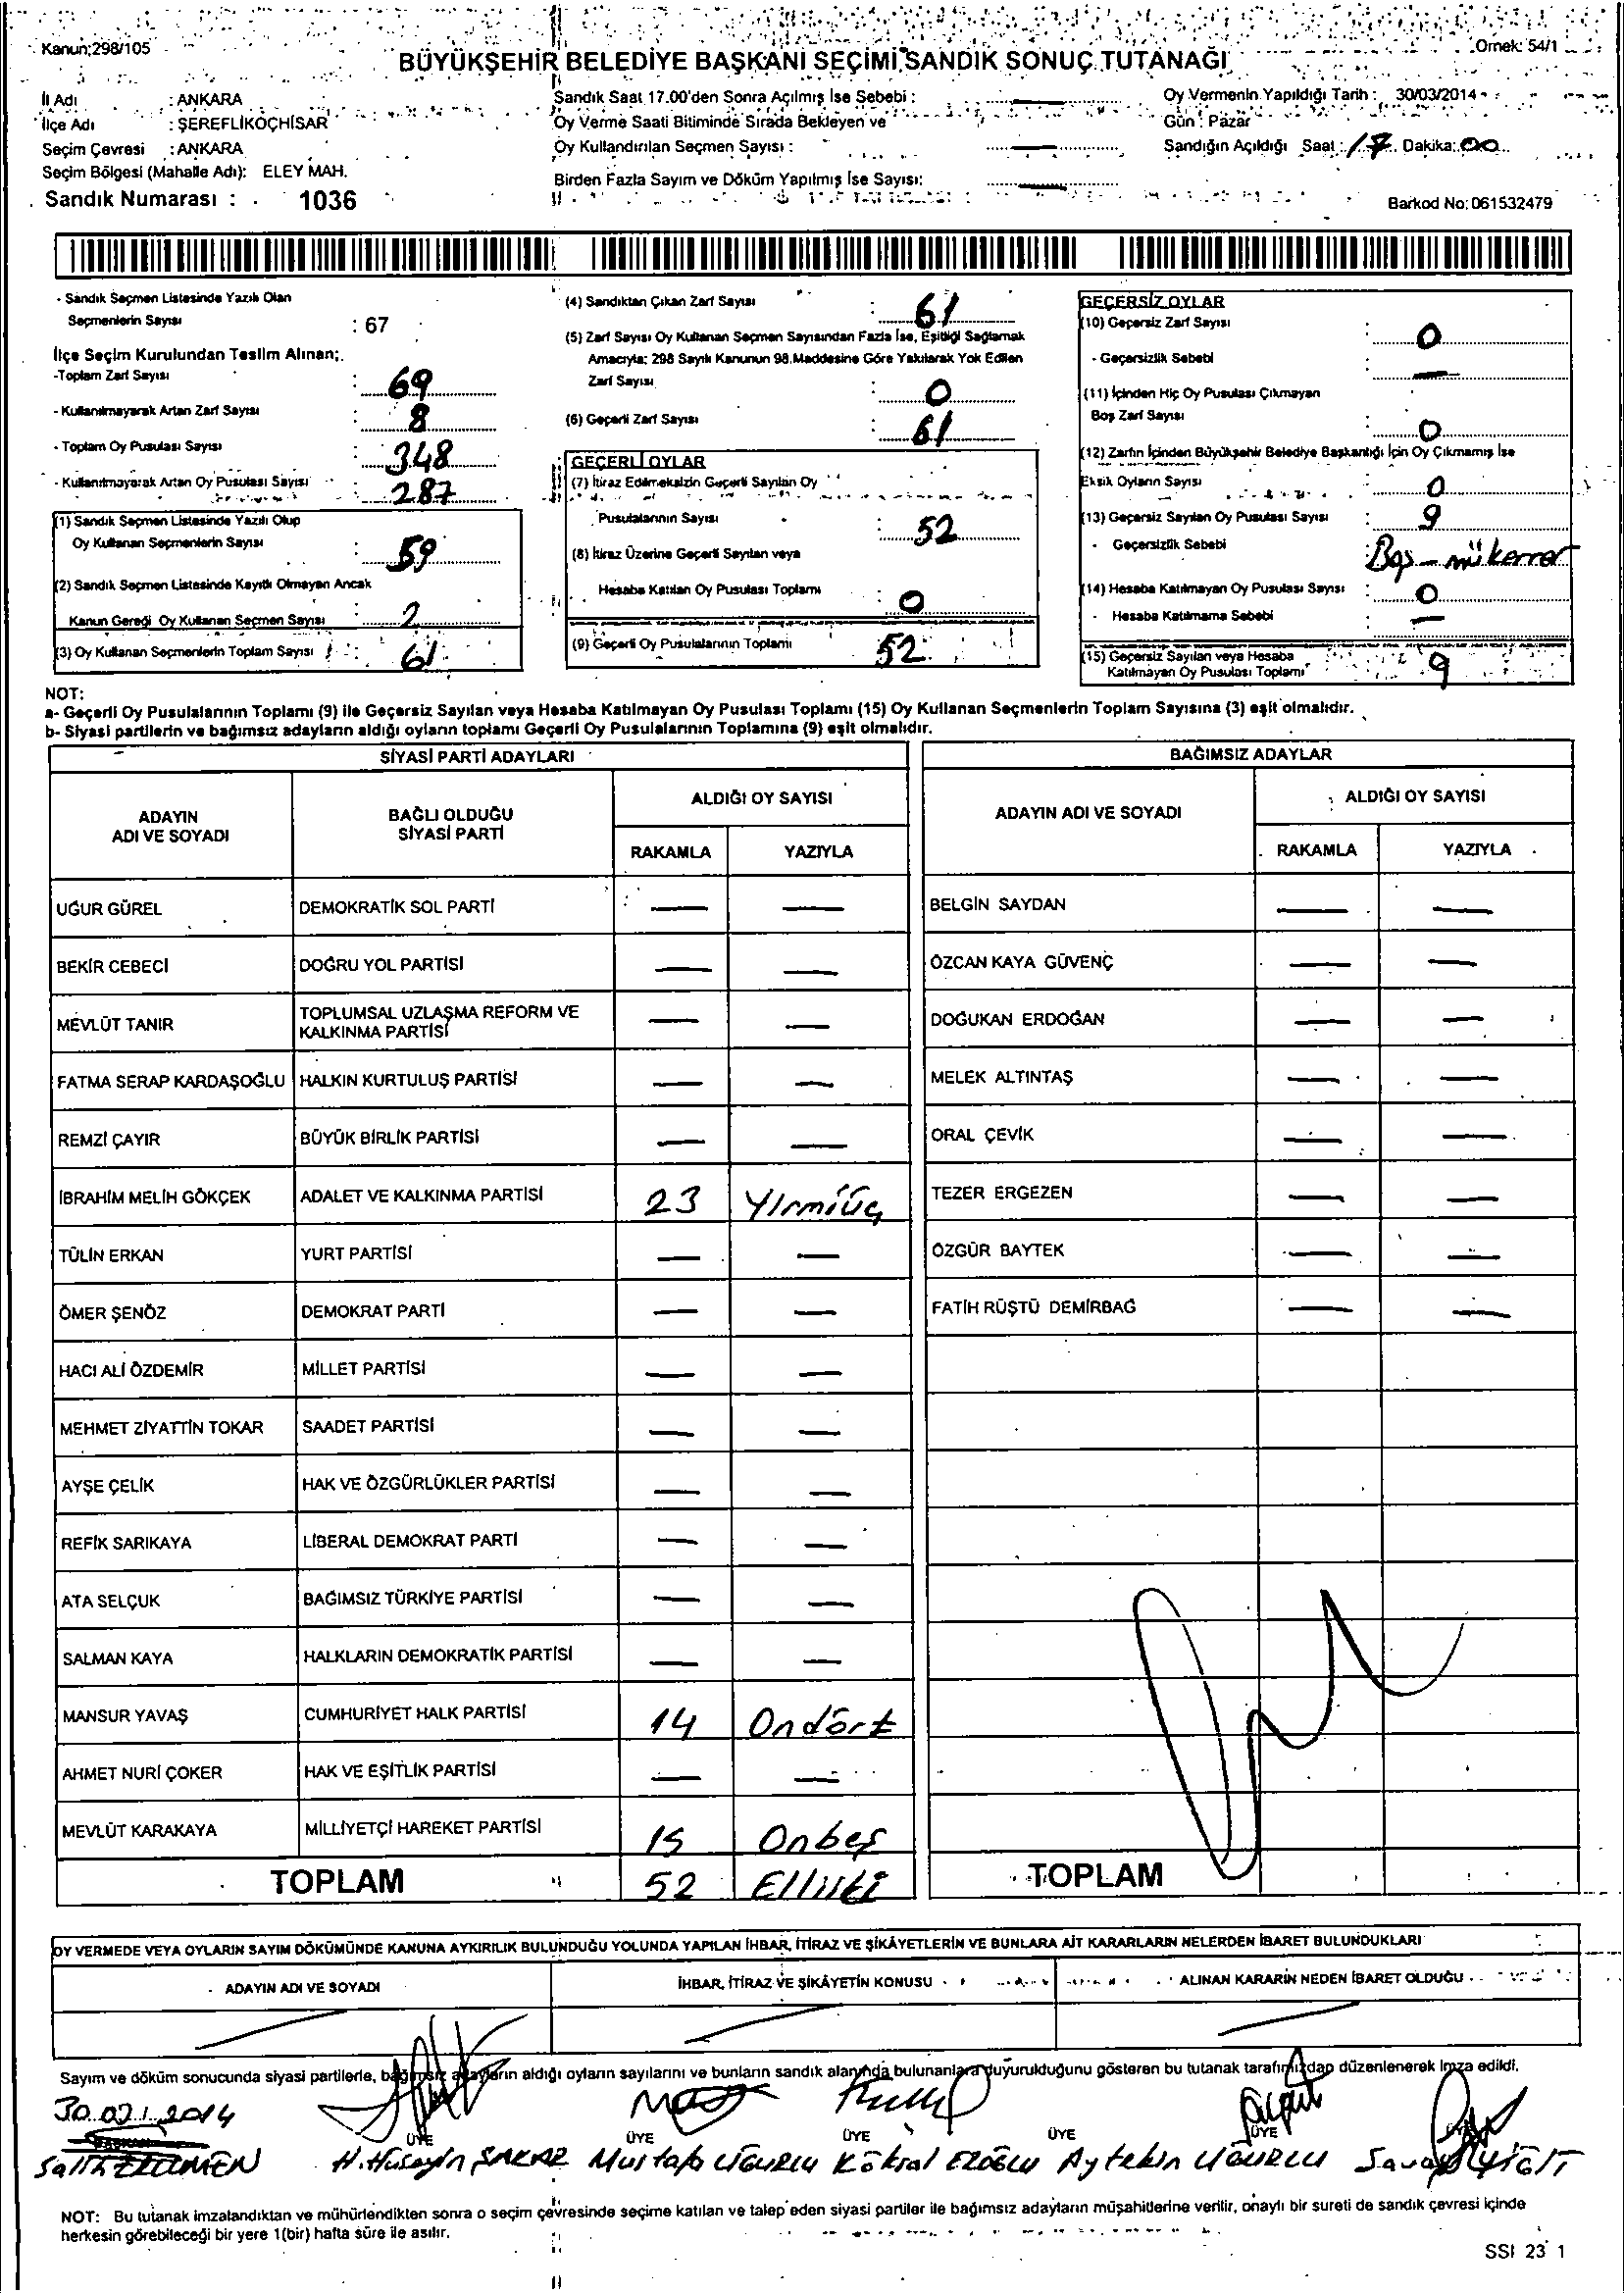 Kanun;298/105
Örnek: 54/1
BÜYÜKŞEHİR BELEDİYE BAŞKANI SEÇİMİ SANDIK SONUÇ TUTANAĞI
İl Adı : ANKARA
İlçe Adı : ŞEREFLİKOÇHİSAR
Seçim Çevresi : ANKARA
Seçim Bölgesi (Mahalle Adı): ELEY MAH.
Sandık Numarası : 1036
Sandık Saat 17.00'den Sonra Açılmış İse Sebebi : —
Oy Verme Saati Bitiminde Sırada Bekleyen ve
Oy Kullandırılan Seçmen Sayısı : —
Birden Fazla Sayım ve Döküm Yapılmış İse Sayısı: —
Oy Vermenin Yapıldığı Tarih : 30/03/2014
Gün : Pazar
Sandığın Açıldığı Saat : 17 Dakika: 00
Barkod No: 061532479
- Sandık Seçmen Listesinde Yazılı Olan
Seçmenlerin Sayısı : 67
İlçe Seçim Kurulundan Teslim Alınan;
-Toplam Zarf Sayısı : 69
- Kullanılmayarak Artan Zarf Sayısı : 8
- Toplam Oy Pusulası Sayısı : 348
- Kullanılmayarak Artan Oy Pusulası Sayısı : 287
(1) Sandık Seçmen Listesinde Yazılı Olup
Oy Kullanan Seçmenlerin Sayısı : 59
(2) Sandık Seçmen Listesinde Kayıtlı Olmayan Ancak
Kanun Gereği Oy Kullanan Seçmen Sayısı : 2
(3) Oy Kullanan Seçmenlerin Toplam Sayısı : 61
(4) Sandıktan Çıkan Zarf Sayısı : 61
(5) Zarf Sayısı Oy Kullanan Seçmen Sayısından Fazla İse, Eşitliği Sağlamak
Amacıyla; 298 Sayılı Kanunun 98.Maddesine Göre Yakılarak Yok Edilen
Zarf Sayısı : 0
(6) Geçerli Zarf Sayısı : 61
GEÇERLİ OYLAR
(7) İtiraz Edilmeksizin Geçerli Sayılan Oy
Pusulalarının Sayısı : 52
(8) İtiraz Üzerine Geçerli Sayılan veya
Hesaba Katılan Oy Pusulası Toplamı : 0
(9) Geçerli Oy Pusulalarının Toplamı 52
GEÇERSİZ OYLAR
(10) Geçersiz Zarf Sayısı : 0
- Geçersizlik Sebebi : —
(11) İçinden Hiç Oy Pusulası Çıkmayan
Boş Zarf Sayısı : 0
(12) Zarfın İçinden Büyükşehir Belediye Başkanlığı İçin Oy Çıkmamış İse
Eksik Oyların Sayısı : 0
(13) Geçersiz Sayılan Oy Pusulası Sayısı : 9
- Geçersizlik Sebebi : Boş - mükerrer
(14) Hesaba Katılmayan Oy Pusulası Sayısı : 0
- Hesaba Katılmama Sebebi : —
(15) Geçersiz Sayılan veya Hesaba
Katılmayan Oy Pusulası Toplamı 9
NOT:
a- Geçerli Oy Pusulalarının Toplamı (9) ile Geçersiz Sayılan veya Hesaba Katılmayan Oy Pusulası Toplamı (15) Oy Kullanan Seçmenlerin Toplam Sayısına (3) eşit olmalıdır.
b- Siyasi partilerin ve bağımsız adayların aldığı oyların toplamı Geçerli Oy Pusulalarının Toplamına (9) eşit olmalıdır.
SİYASİ PARTİ ADAYLARI
ADAYIN
ADI VE SOYADI
BAĞLI OLDUĞU
SİYASİ PARTİ
ALDIĞI OY SAYISI
RAKAMLA YAZIYLA
UĞUR GÜREL DEMOKRATİK SOL PARTİ — —
BEKİR CEBECİ DOĞRU YOL PARTİSİ — —
MEVLÜT TANIR TOPLUMSAL UZLAŞMA REFORM VE
KALKINMA PARTİSİ — —
FATMA SERAP KARDAŞOĞLU HALKIN KURTULUŞ PARTİSİ — —
REMZİ ÇAYIR BÜYÜK BİRLİK PARTİSİ — —
İBRAHİM MELİH GÖKÇEK ADALET VE KALKINMA PARTİSİ 23 Yirmiüç
TÜLİN ERKAN YURT PARTİSİ — —
ÖMER ŞENÖZ DEMOKRAT PARTİ — —
HACI ALİ ÖZDEMİR MİLLET PARTİSİ — —
MEHMET ZİYATTİN TOKAR SAADET PARTİSİ — —
AYŞE ÇELİK HAK VE ÖZGÜRLÜKLER PARTİSİ — —
REFİK SARIKAYA LİBERAL DEMOKRAT PARTİ — —
ATA SELÇUK BAĞIMSIZ TÜRKİYE PARTİSİ — —
SALMAN KAYA HALKLARIN DEMOKRATİK PARTİSİ — —
MANSUR YAVAŞ CUMHURİYET HALK PARTİSİ 14 Ondört
AHMET NURİ ÇOKER HAK VE EŞİTLİK PARTİSİ — —
MEVLÜT KARAKAYA MİLLİYETÇİ HAREKET PARTİSİ 15 Onbeş
TOPLAM 52 Elliiki
BAĞIMSIZ ADAYLAR
ADAYIN ADI VE SOYADI
ALDIĞI OY SAYISI
RAKAMLA YAZIYLA
BELGİN SAYDAN — —
ÖZCAN KAYA GÜVENÇ — —
DOĞUKAN ERDOĞAN — —
MELEK ALTINTAŞ — —
ORAL ÇEVİK — —
TEZER ERGEZEN — —
ÖZGÜR BAYTEK — —
FATİH RÜŞTÜ DEMİRBAĞ — —
TOPLAM
OY VERMEDE VEYA OYLARIN SAYIM DÖKÜMÜNDE KANUNA AYKIRILIK BULUNDUĞU YOLUNDA YAPILAN İHBAR, İTİRAZ VE ŞİKÂYETLERİN VE BUNLARA AİT KARARLARIN NELERDEN İBARET BULUNDUKLARI
ADAYIN ADI VE SOYADI
İHBAR, İTİRAZ VE ŞİKÂYETİN KONUSU
ALINAN KARARIN NEDEN İBARET OLDUĞU
Sayım ve döküm sonucunda siyasi partilerle, bağımsız adayların aldığı oyların sayılarını ve bunların sandık alanında bulunanlara duyurulduğunu gösteren bu tutanak tarafımızdan düzenlenerek imza edildi.
30.03.2014
BAŞKAN ÜYE ÜYE ÜYE ÜYE ÜYE
Salih H.Hüseyin Mustafa UĞURLU Köksal EROĞLU Aytekin UĞURLU Savaş YİĞİT
NOT: Bu tutanak imzalandıktan ve mühürlendikten sonra o seçim çevresinde seçime katılan ve talep eden siyasi partiler ile bağımsız adayların müşahitlerine verilir, onaylı bir sureti de sandık çevresi içinde
herkesin görebileceği bir yere 1(bir) hafta süre ile asılır.
SSI 23 1